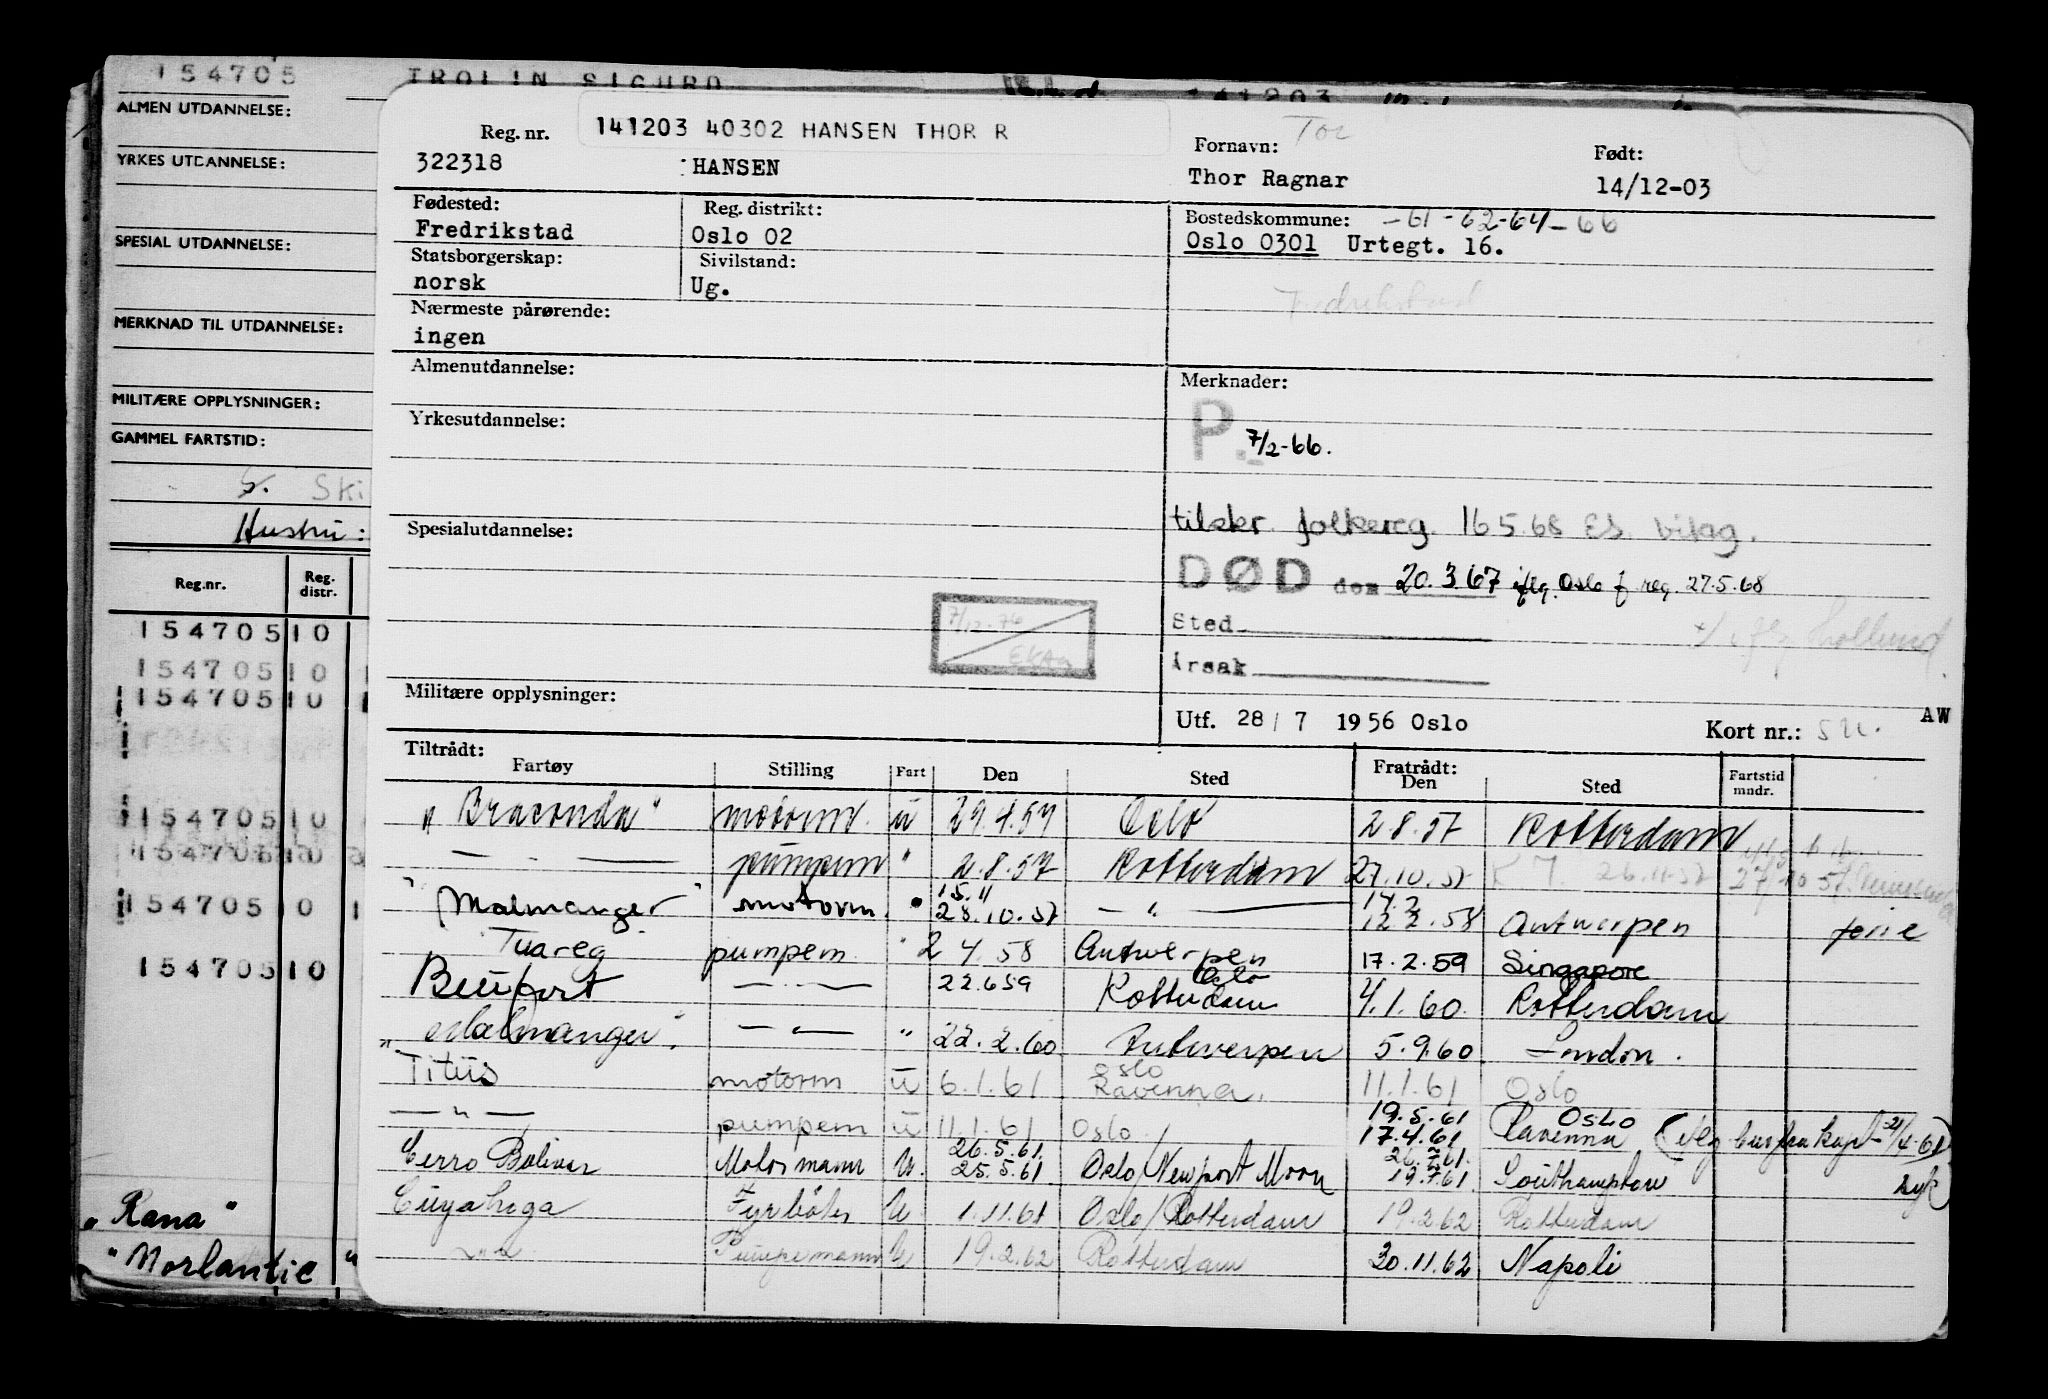 154705 TROLIN SIGURD 141203
ALMEN UTDANNELSE:
YRKES UTDANNELSE:
SPESIAL UTDANNELSE:
MERKNAD TIL UTDANNELSE:
MILITÆRE OPPLYSNINGER:
GAMMEL FARTSTID:
S. Ski
Hustru:
Reg.nr. Reg. distr.
154705 10
154705 10
154705 10
154705 10
154705 10
154705 10 1
154705 10
"Rana"
"Norlantic"
Reg. nr. 141203 40302 HANSEN THOR R Tor
322318 HANSEN Fornavn: Født:
Thor Ragnar 14/12-03
Fødested: Reg. distrikt: Bostedskommune: -61-62-64-66
Fredrikstad Oslo 02 Oslo 0301 Urtegt. 16.
Statsborgerskap: Sivilstand:
norsk Ug. Fredrikstad
Nærmeste pårørende:
ingen
Almenutdannelse: Merknader:
Yrkesutdannelse: P. 7/2-66.
Spesialutdannelse: tilskr. folkereg. 16.5.68 Es. bilag.
DØD den 20.3.67 iflg. Oslo f reg. 27.5.68
7/12-76 Sted
Årsak
Militære opplysninger:
Utf. 28/7 1956 Oslo Kort nr.: AW
Tiltrådt: Fratrådt:
Fartøy Stilling Fart Den Sted Den Sted Fartstid mndr.
"Braconda" motorm. u 29.4.57 Oslo 2 8.57 Rotterdam
— " — pumpem " 2.8.57 Rotterdam 27.10.57 26.11.57
"Malmanger" motorm. " 15.11 28.10.57 — " — 17.2 12.2.58 Antwerpen ferie
Tuareg pumpem. " 2 4 58 Antwerpen 17.2.59 Singapore
Beufort — " — 22.6 59 Oslo Rotterdam 4.1.60. Rotterdam
"Malmanger" — " — " 22.2.60 Antwerpen 5.9.60 London.
Titus motorm u 6.1.61 Oslo Ravenna. 11.1.61 Oslo
— " — pumpem u 11.1.61 Oslo 19.5.61 17.4.61 Oslo Ravenna
Cerro Bolivar Motormann U. 26.5.61 25.5.61 Oslo/Newport Moon 26.7.61. 19.7.61 Southampton syk)
Cuyahoga Fyrbøter U 1.11.61 Oslo/Rotterdam 19.2.62 Rotterdam
— " — Pumpemann U 19.2.62 Rotterdam 30.11.62 Napoli